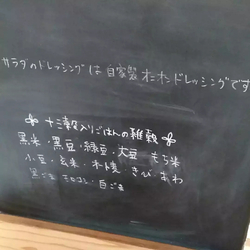 サラダのドレッシングは自家製オニオンドレッシングです
十三穀入りごはんの雑穀
黒米・黒豆・緑豆・大豆・もち米
小豆・玄米・ ・きび・あわ
黒ごま ・白ごま